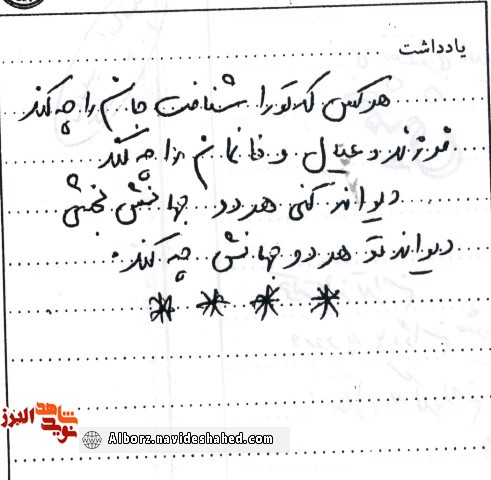 یادداشت
هر کس که تو را شناخت جانم را چه کند
فرزند و عیال و خانمانم را چه کند
دیوانه کنی هر دو جهانش بخشی
دیوانه تو هر دو جهانش چه کند.
* * * *
شاهد
نوید البرز
Alborz.navideshahed.com